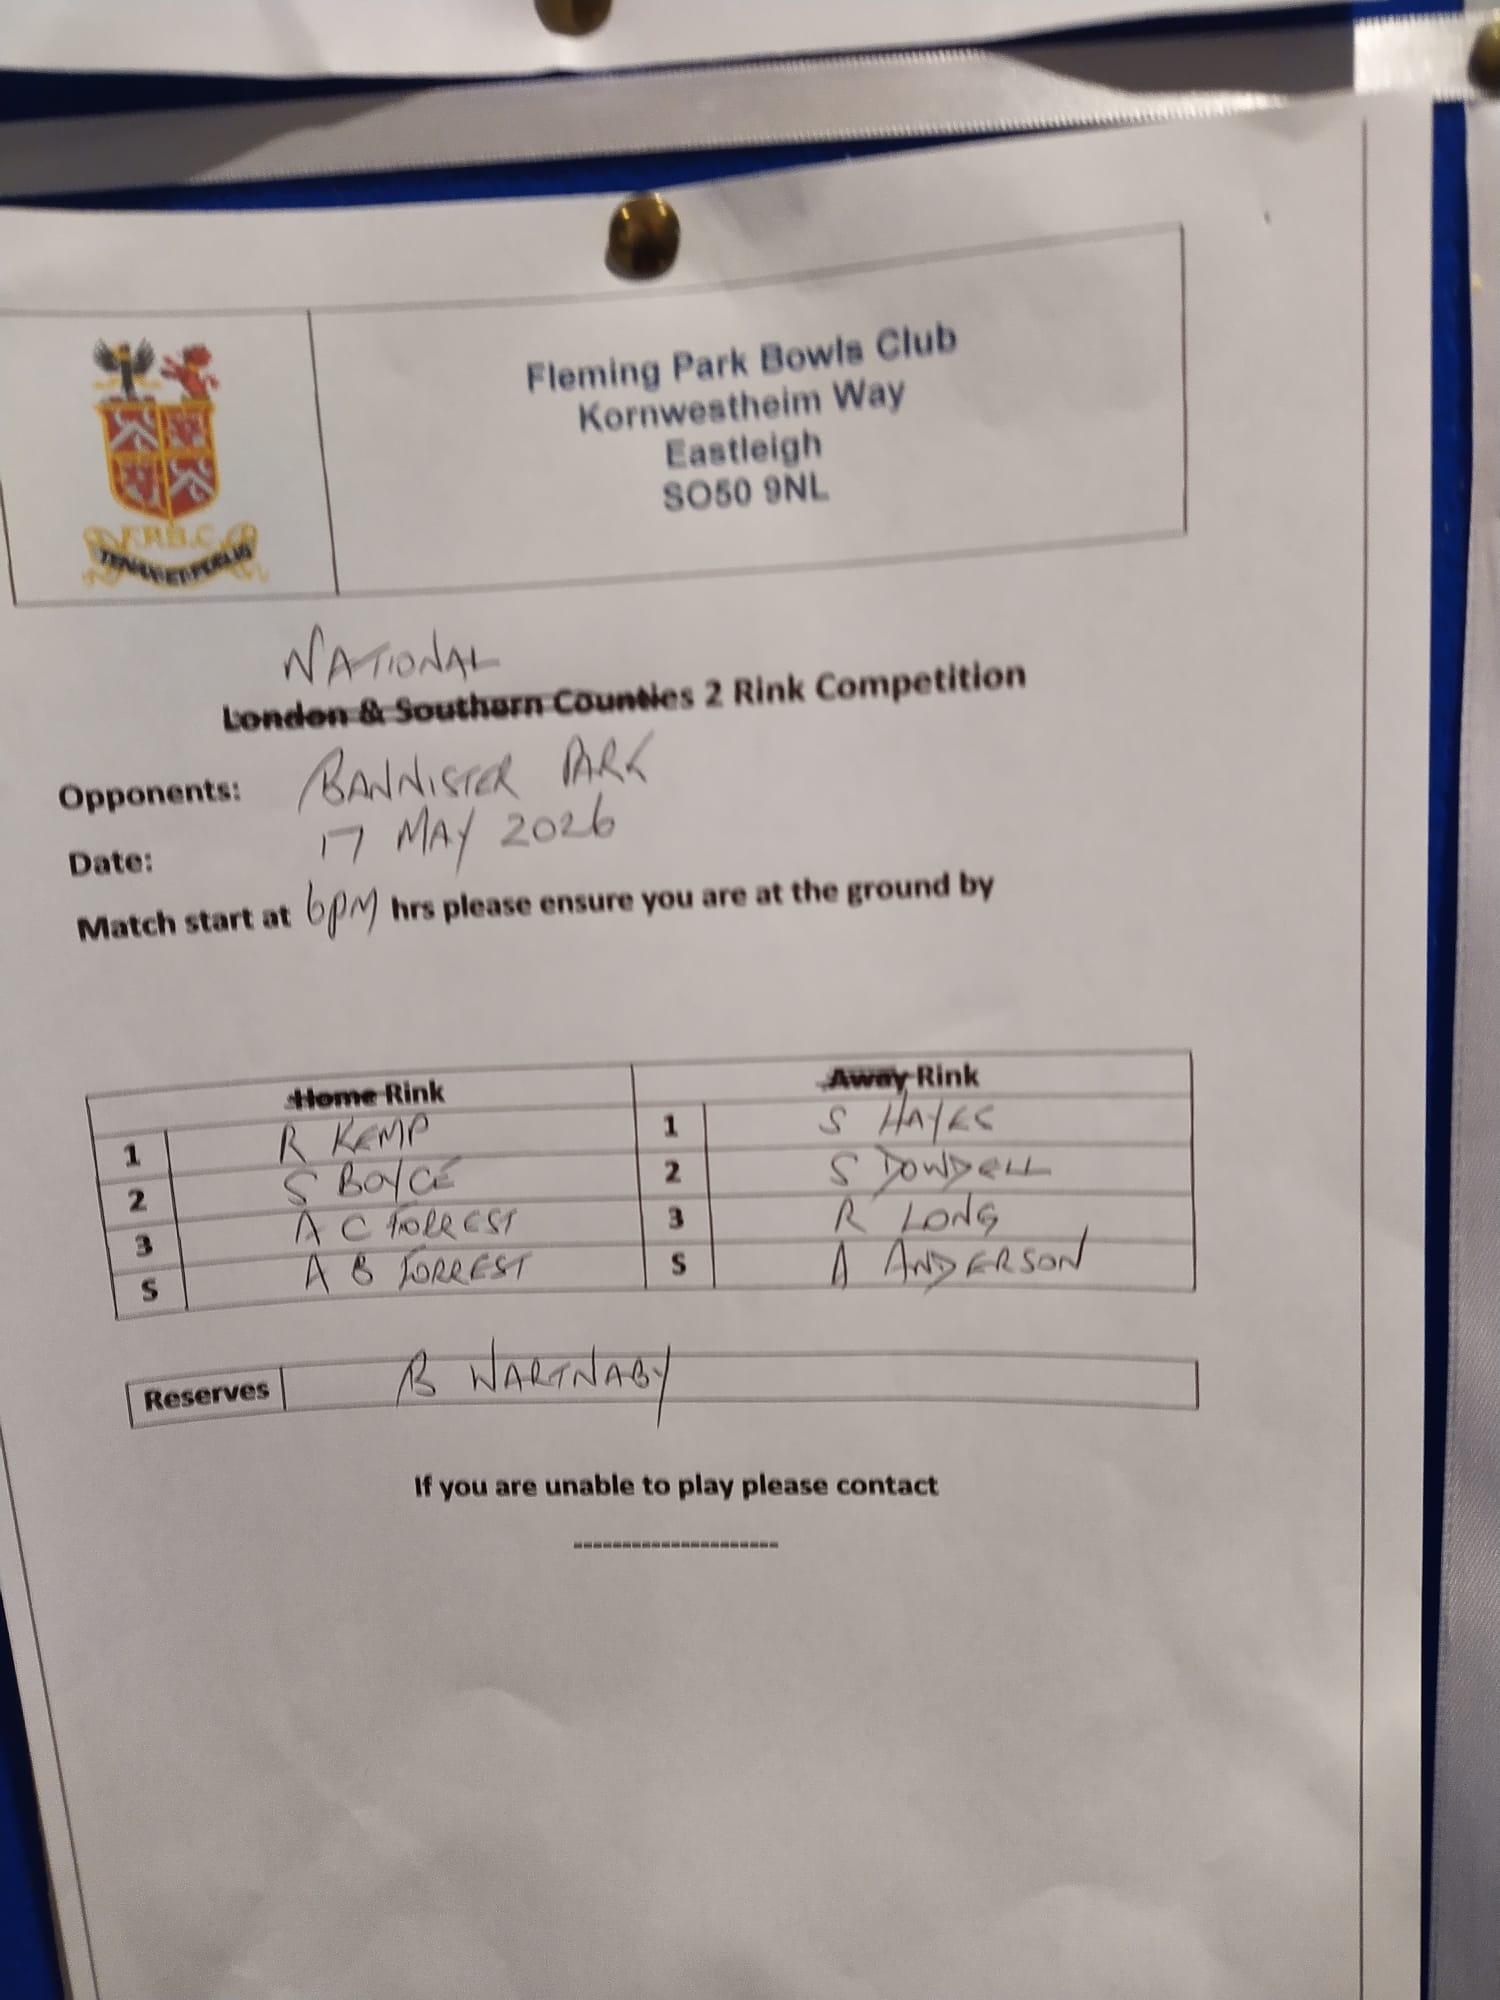 F.P.B.C.
Fleming Park Bowls Club
Kornwestheim Way
Eastleigh
SO50 9NL
NATIONAL
London & Southern Counties 2 Rink Competition
Opponents: BANNISTER PARK
Date: 17 MAY 2026
Match start at 6PM hrs please ensure you are at the ground by
Home Rink Away Rink
1 R KEMP 1 S HAYES
2 S BOYCE 2 S DOWDELL
3 A C FORREST 3 R LONG
S A B FORREST S A ANDERSON
Reserves B WARTNABY
If you are unable to play please contact
---------------------